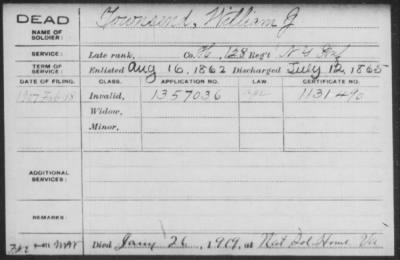 DEAD
NAME OF SOLDIER: Townsend, William J
SERVICE: Late rank, Co. G, 128 Reg't N Y Inf
TERM OF SERVICE: Enlisted Aug 16, 1862 Discharged July 12, 1865
DATE OF FILING. CLASS. APPLICATION NO. LAW. CERTIFICATE NO.
1907 Feb 18 Invalid, 1357036 1131490
Widow,
Minor,
ADDITIONAL SERVICES:
REMARKS:
Died Jany 26, 1909, at Nat Sol Home Va